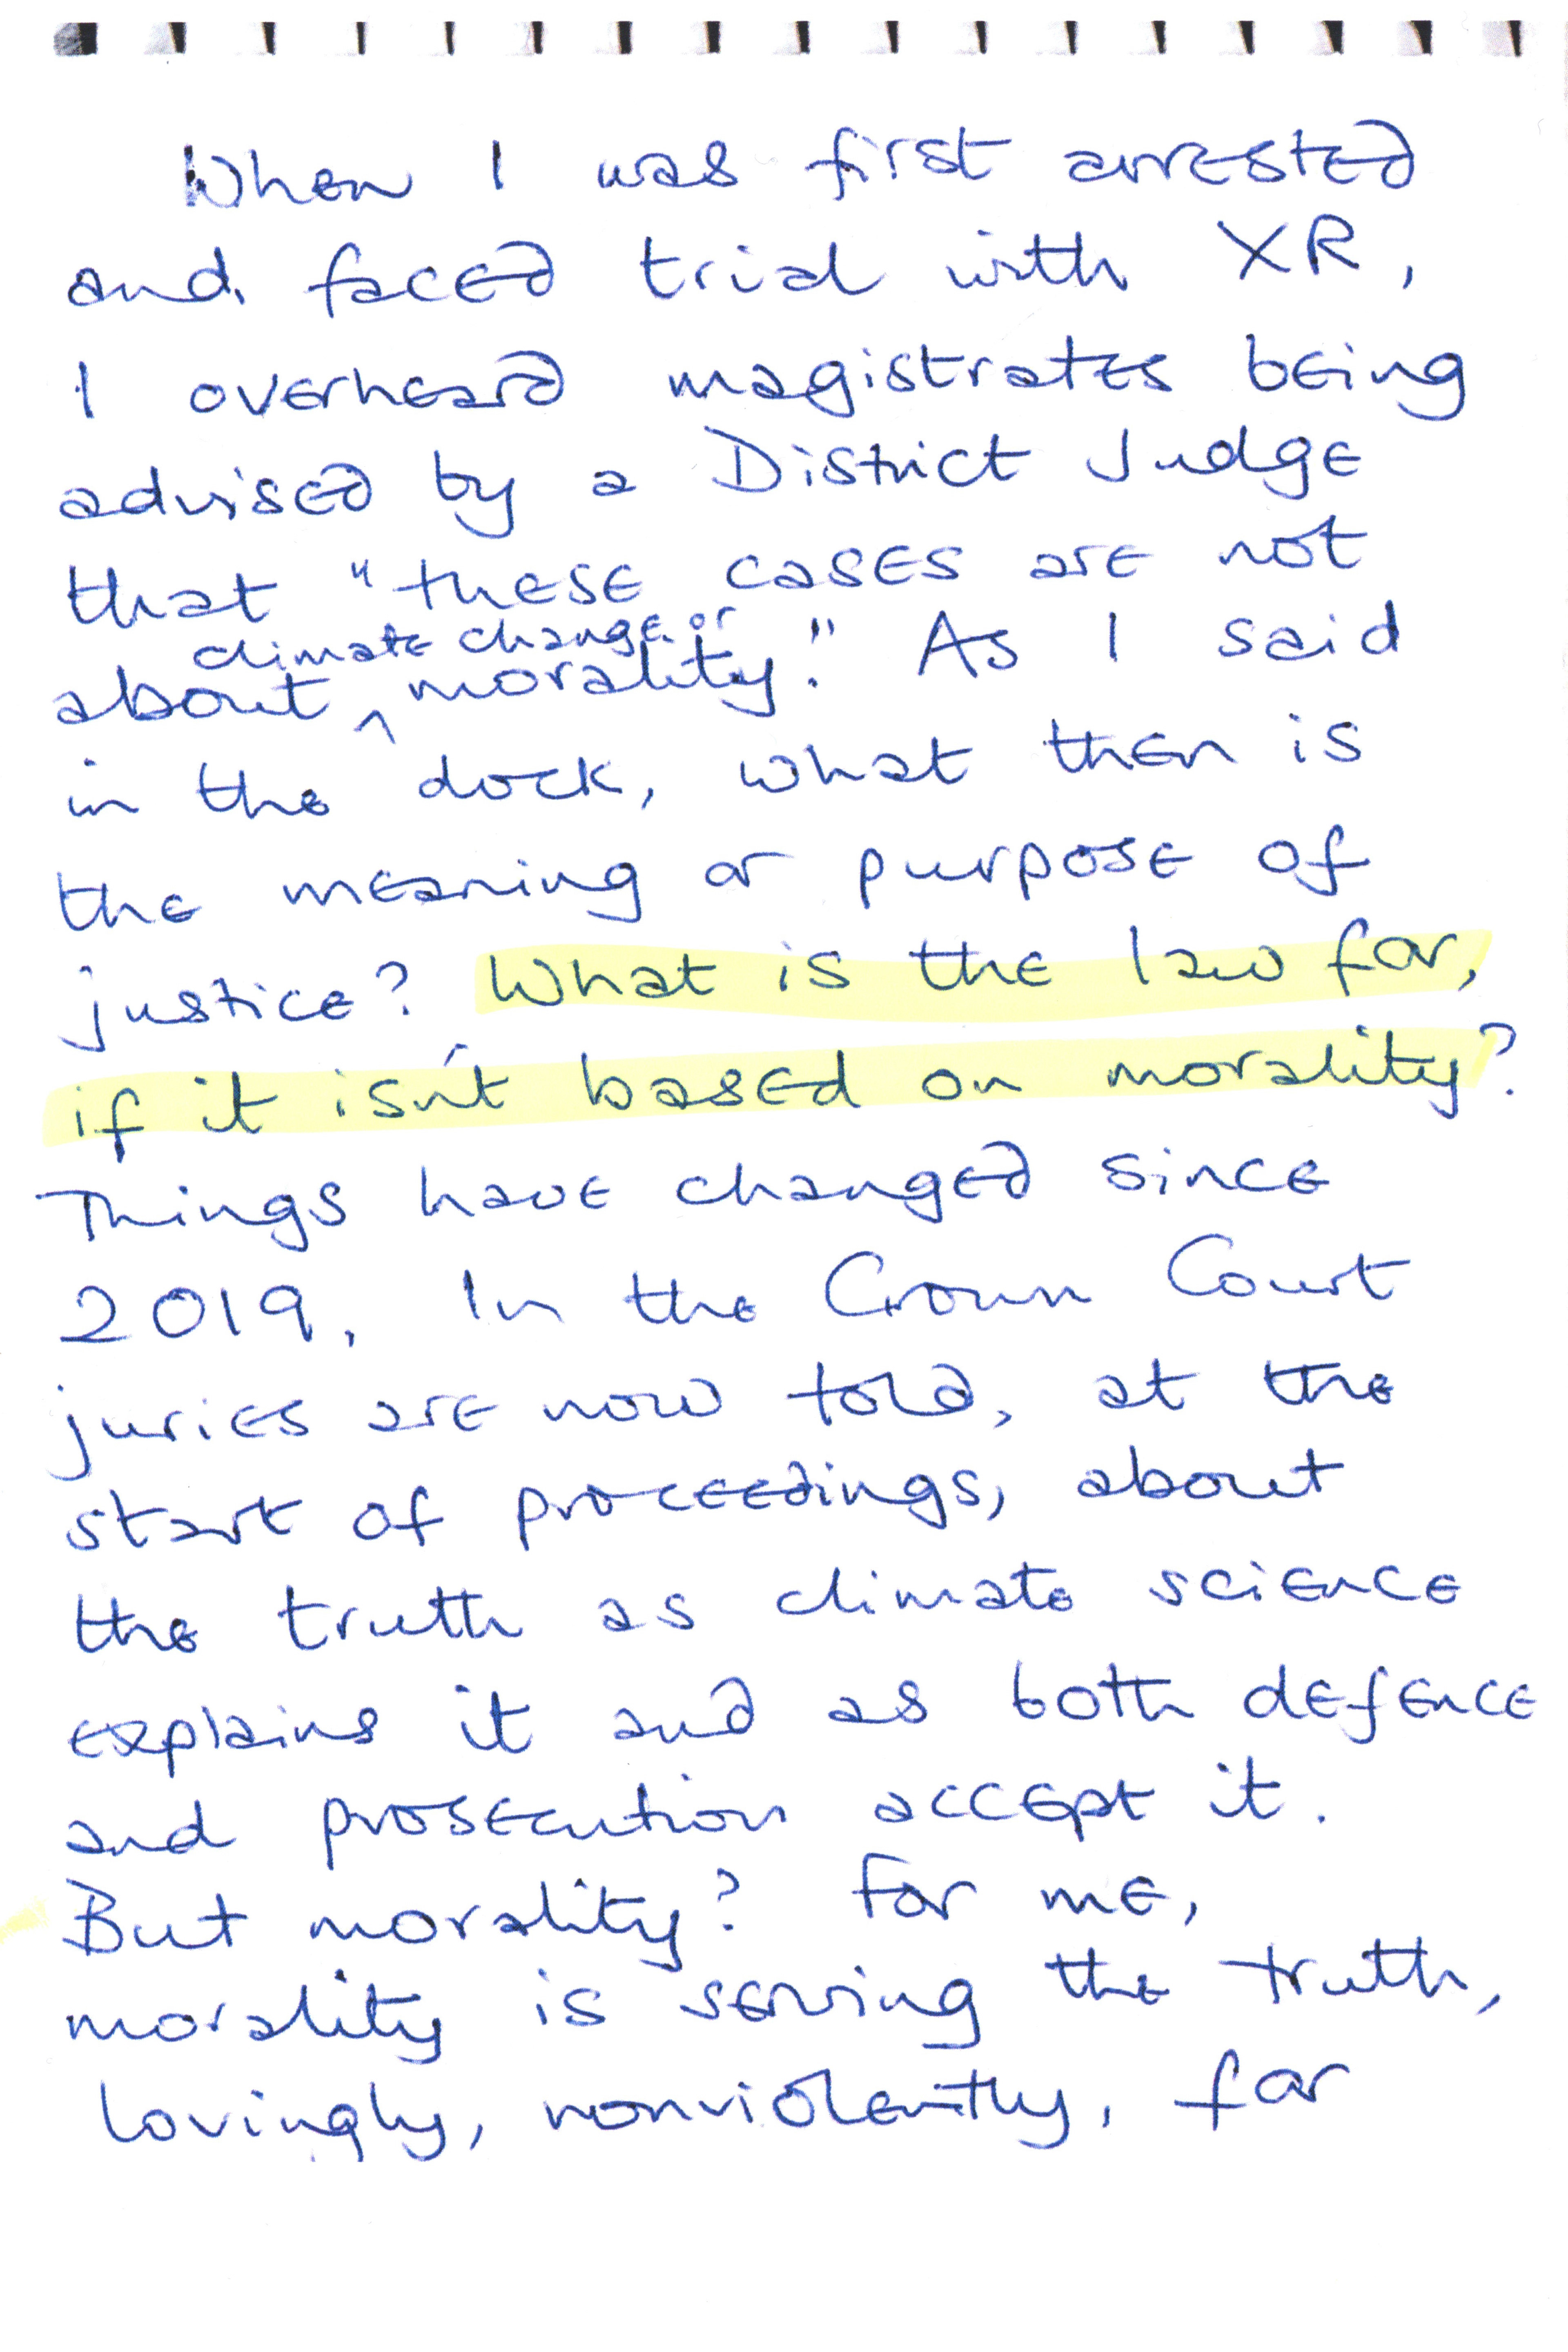 When I was first arrested
and faced trial with XR,
I overheard magistrates being
advised by a District Judge
that "these cases are not
about climate change or morality." As I said
in the dock, what then is
the meaning or purpose of
justice? What is the law for,
if it isn't based on morality?
Things have changed since
2019. In the Crown Court
juries are now told, at the
start of proceedings, about
the truth as climate science
explains it and as both defence
and prosecution accept it.
But morality? For me,
morality is serving the truth,
lovingly, nonviolently, for